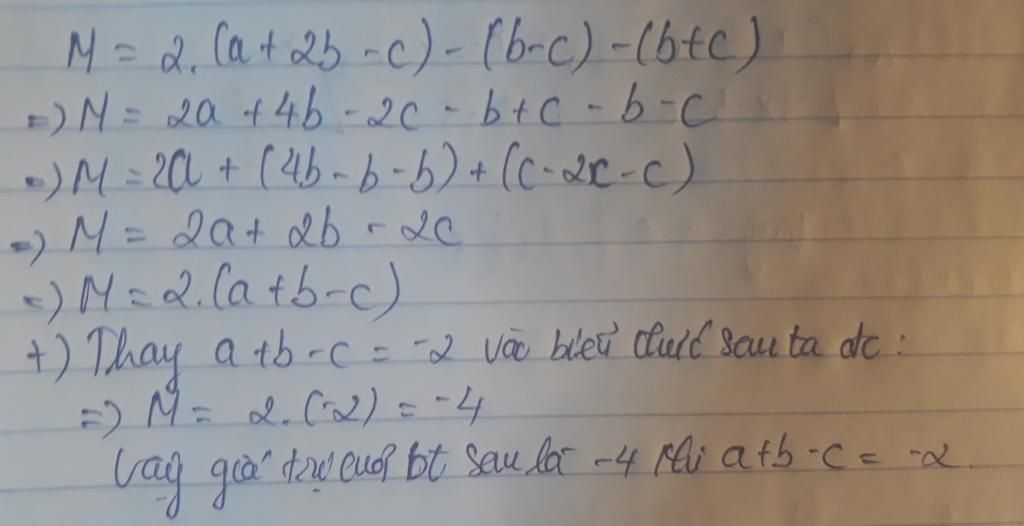 M = 2.(a + 2b - c) - (b - c) - (b + c)
=) M = 2a + 4b - 2c - b + c - b - c
=) M = 2a + (4b - b - b) + (c - 2c - c)
=) M = 2a + 2b - 2c
=) M = 2.(a + b - c)
+) Thay a + b - c = -2 vào biểu thức sau ta dc :
=) M = 2.(-2) = -4
Vậy giá trị của bt sau là -4 khi a + b - c = -2.